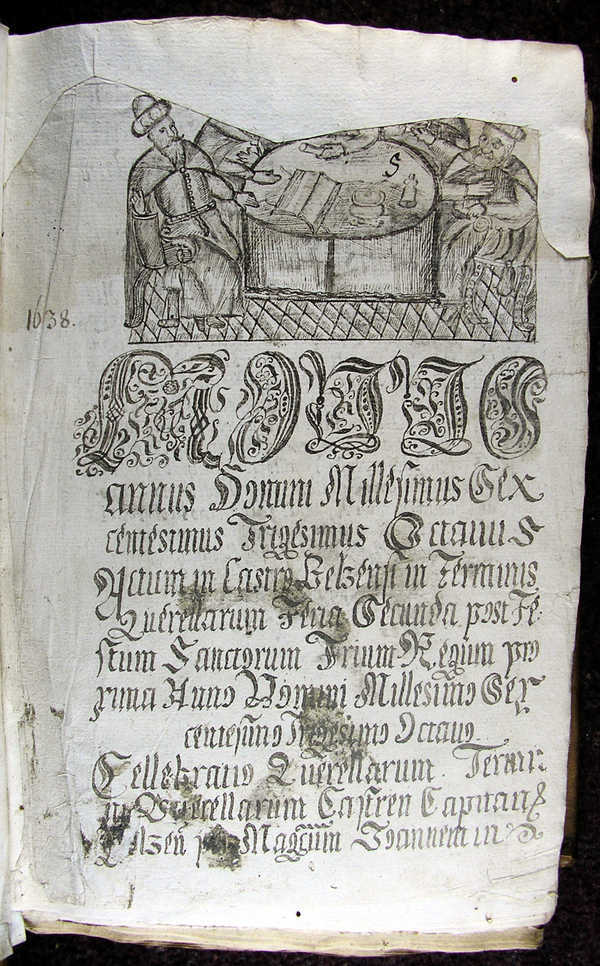 S
1638.
NOVUS
annus Domini Millesimus Sex
centesimus Trigesimus Octavus
Actum in Castro Belzensi in Terminis
Querellarum Feria Secunda post Fe-
stum Sanctorum Trium Regum pro
xima Anno Domini Millesimo Sex
centesimo Trigesimo Octavo.
Cellebratio Querellarum. Termi
Querellarum Castren Capitan
Belzen per Magcum Joannem in